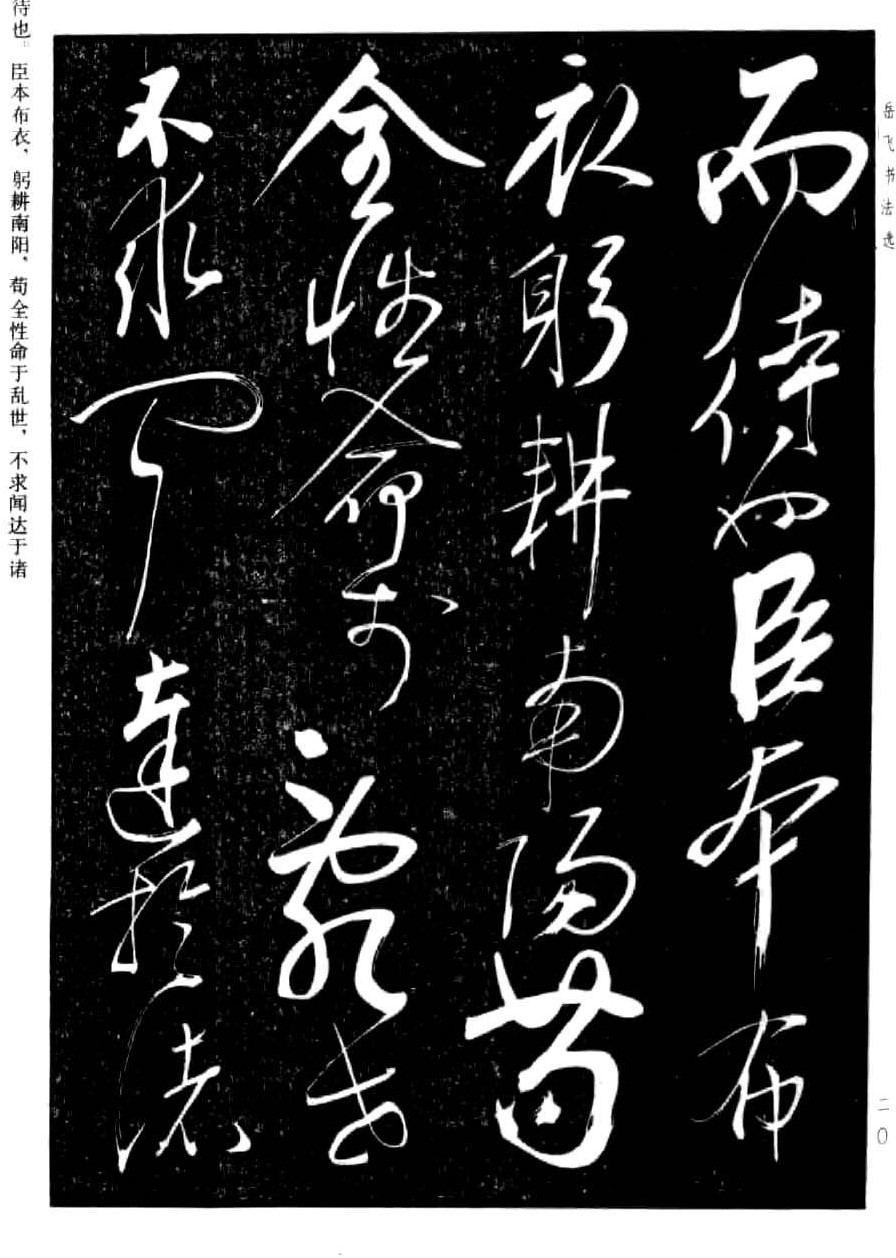 岳飞书法选
而待也臣本布
衣躬耕南阳苟
全性命於亂世
不求闻達於诸
待也。臣本布衣，躬耕南阳，苟全性命于乱世，不求闻达于诸
二〇